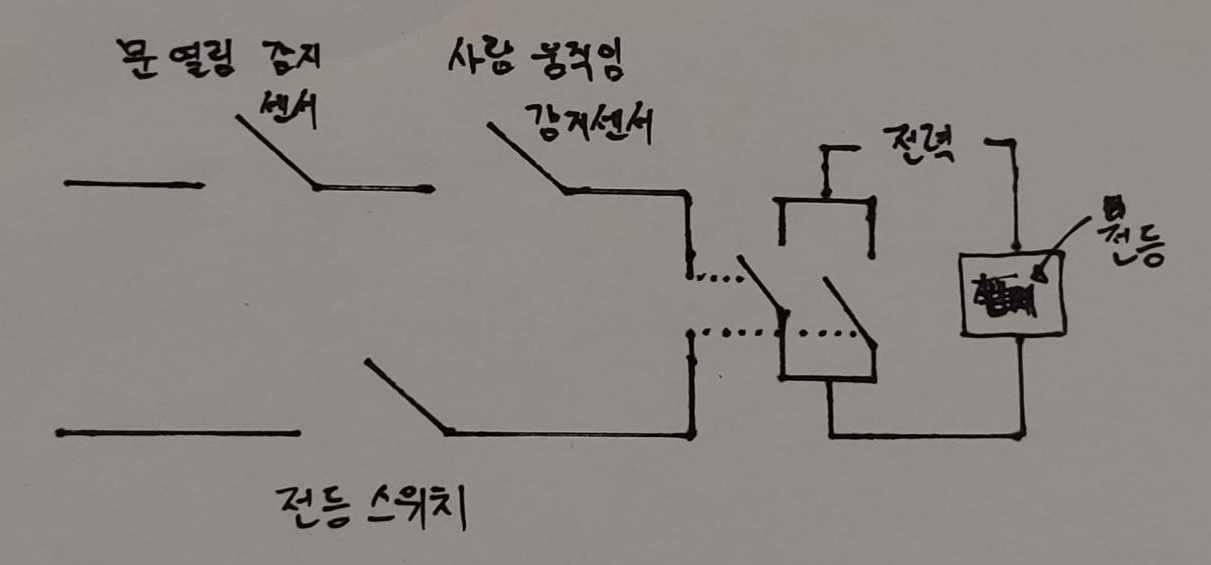 문 열림 감지
센서
사람 움직임
감지센서
전력
전등
전등 스위치